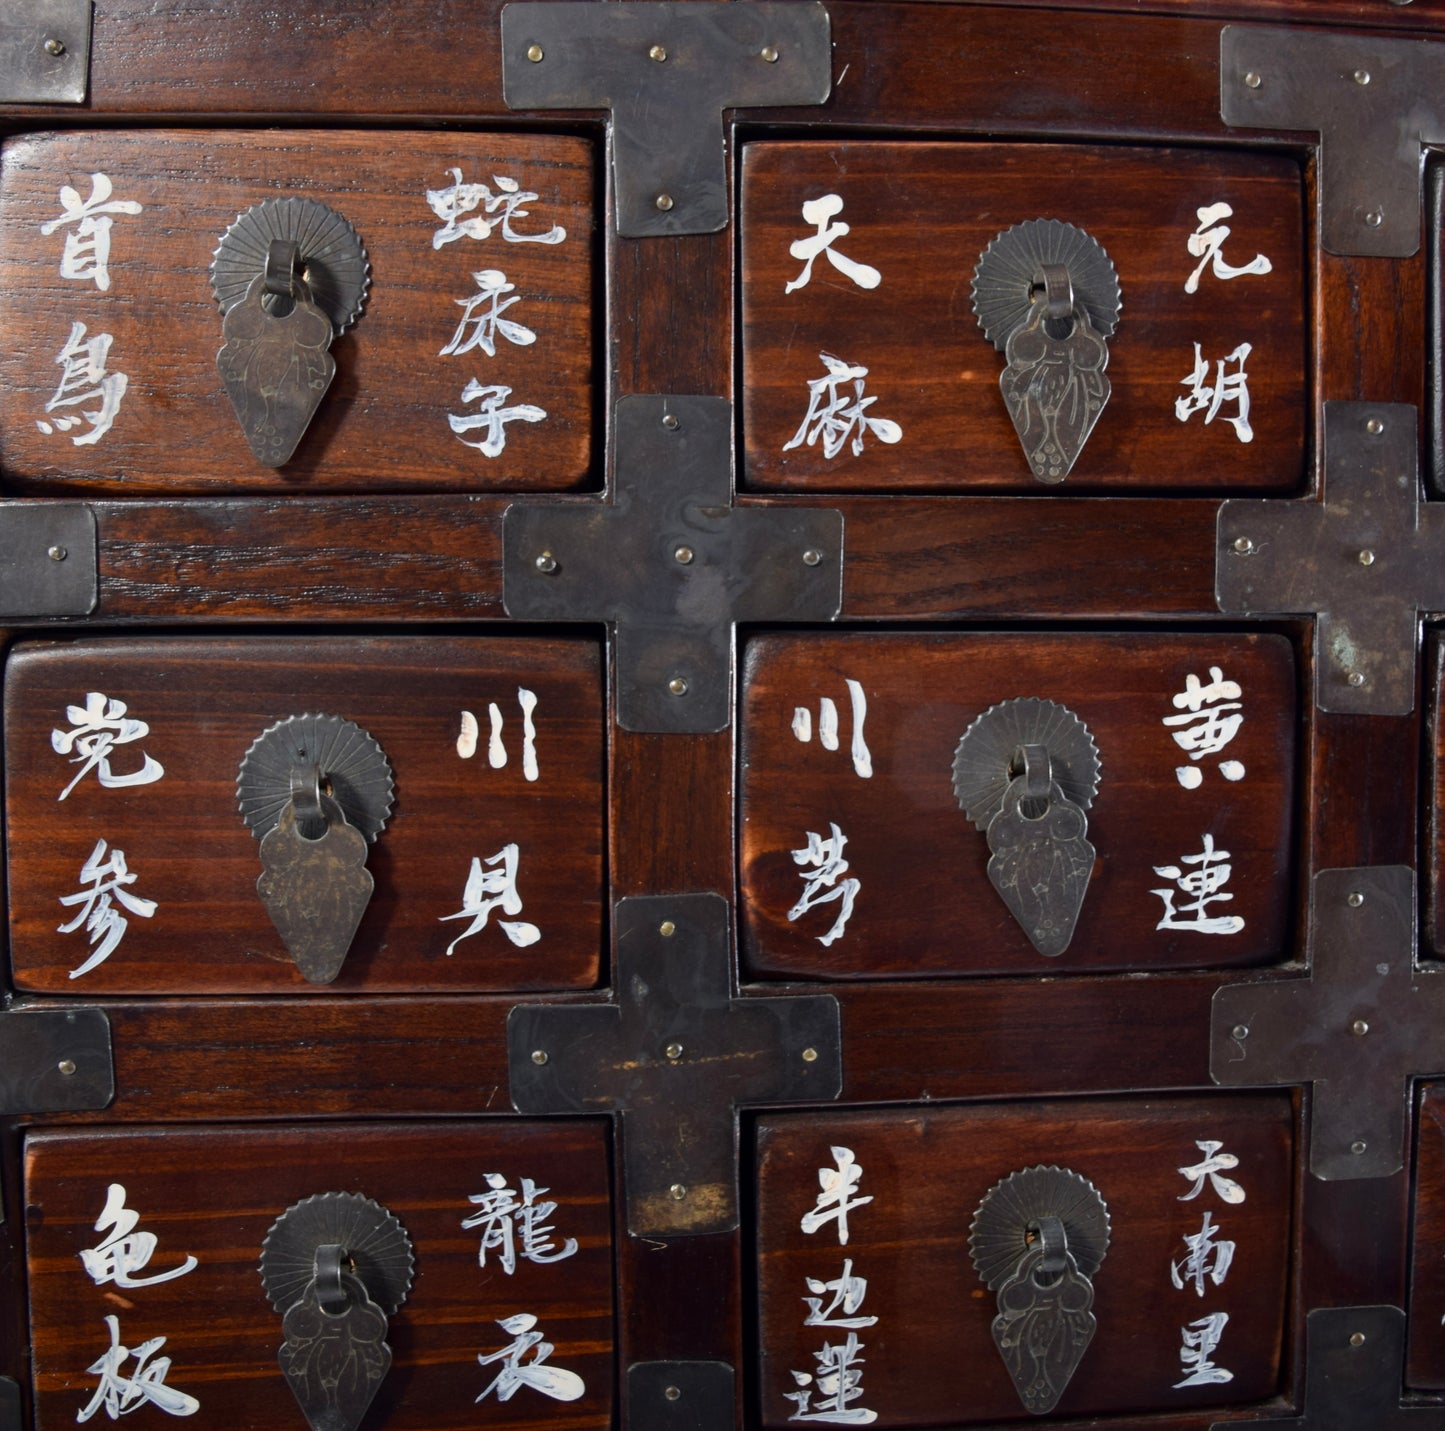 首鳥
蛇床子
天麻
元胡
党参
川貝
川芎
黄連
龟板
龍衣
半边蓮
天南里